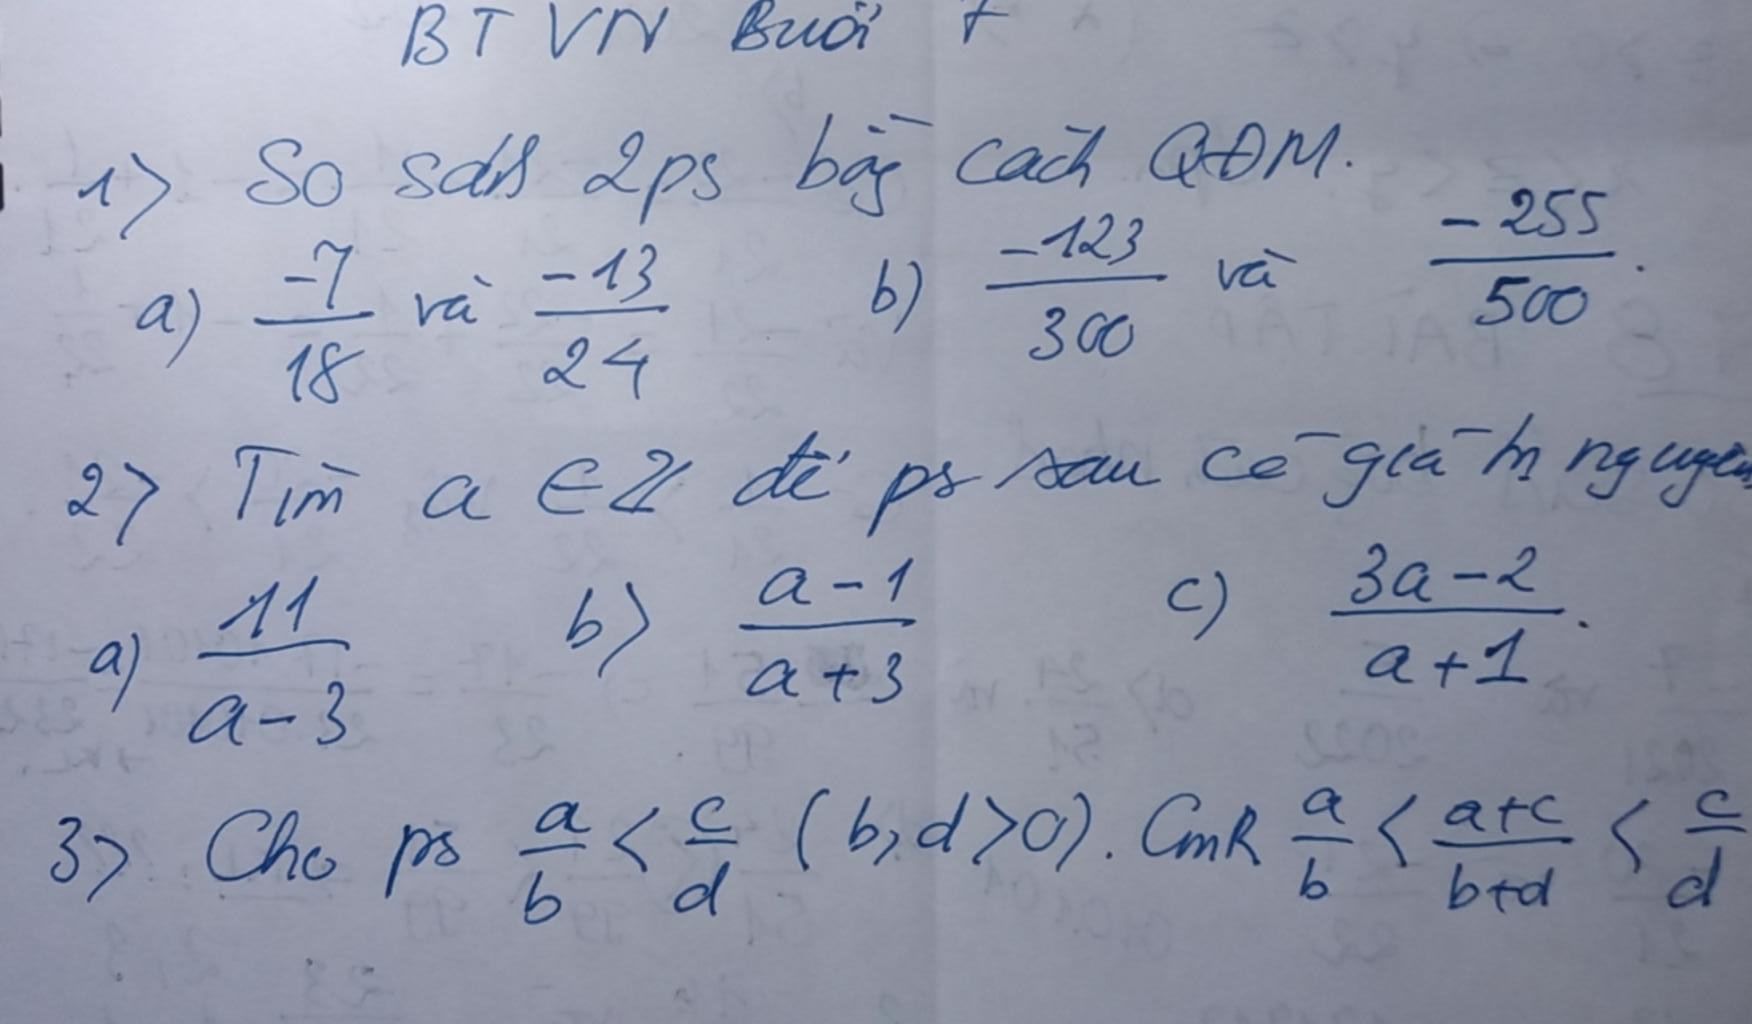 BTVN Buổi 7
1> So sánh 2ps bằg cách QĐM.
a) -7/18 và -13/24 b) -123/300 và -255/500.
2> Tìm a ∈ Z để ps sau có giá trị nguyên
a) 11/a-3 b> a-1/a+3 c) 3a-2/a+1.
3> Cho ps a/b < c/d (b,d>0). CmR a/b < a+c/b+d < c/d